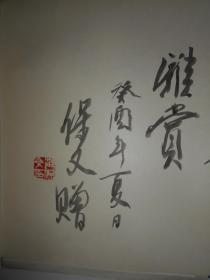 雅赏
癸酉年夏日
保文赠